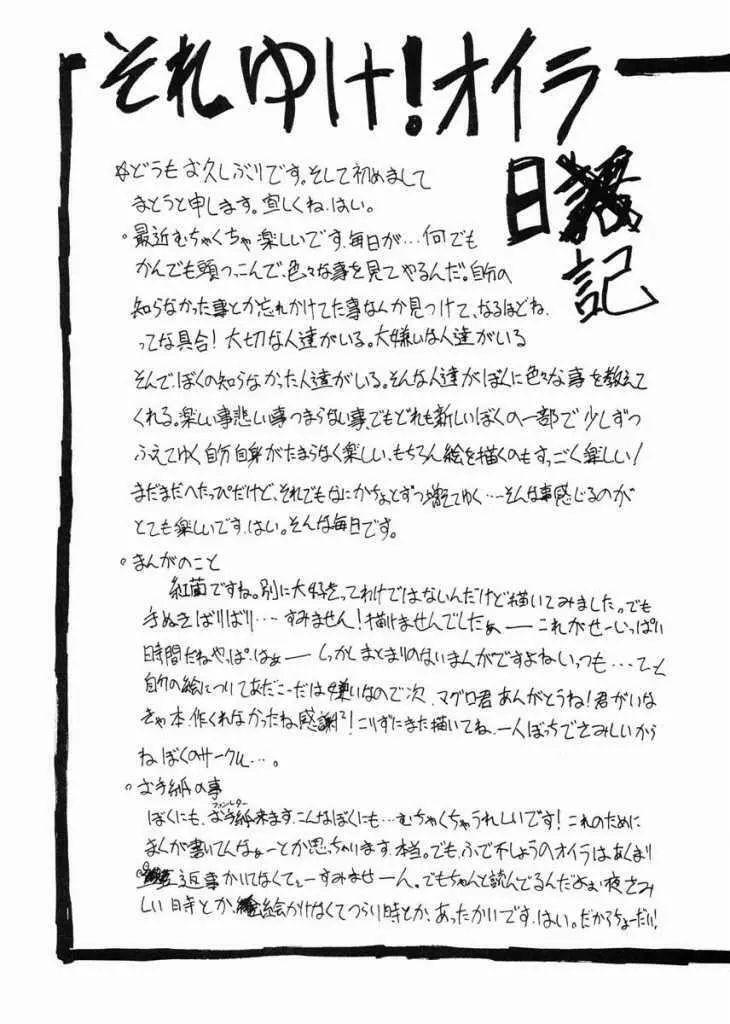 それゆけ!オイラ
日記
☆どうもお久しぶりです。そして初めまして
まとうと申します。宜しくね。はい。
。最近むちゃくちゃ楽しいです、毎日が…何でも
かんでも頭つっこんで、色々な事を見てやるんだ。自分の
知らなかった事とか忘れかけてた事なんか見つけて、なるほどね、
ってな具合!大切な人達がいる。大嫌いな人達がいる
そんで、ぼくの知らなかった人達がいる。そんな人達がぼくに色々な事を教えて
くれる。楽しい事悲しい事つまらない事、でもどれも新しいぼくの一部で少しずつ
ふえてゆく自分自身がたまらなく楽しい、もちろん絵を描くのもすっごく楽しい!
まだまだへたっぴだけど、それでもなにかちょとずつ増えてゆく…そんな事感じるのが
とても楽しいです、はい。そんな毎日です。
。まんがのこと
紅茜ですね。別に大好きってわけではないんだけど描いてみました。でも
手ぬきばりばり…すみません!描けませんでしたぁーこれがせーいっぱい
時間だねやっぱ。はぁーしっかしまとまりのないまんがですよねいっつも…てと
自分の絵についてあだこーだは嫌いなので次、マグロ君あんがとうね!君がいな
きゃ本、作くれなかったね、感謝!こりずにまた描いてね、一人ぼっちでさみしいから
ねぼくのサークル…。
。お手紙の事
ぼくにも、お手紙(ファンレター)来ます、こんなぼくにも…むちゃくちゃうれしいです!これのために
まんが書いてんなぁーとか思っちゃいます、本当。でも、ふでぶしょうのオイラは、あんまり
返事かいてなくてぇーすみませーん。でもちゃんと読んでるんだよぉ、夜さみ
しい日寺とか、絵がかけなくてつらい時とか、あったかいです、はい。だからちょーだい!